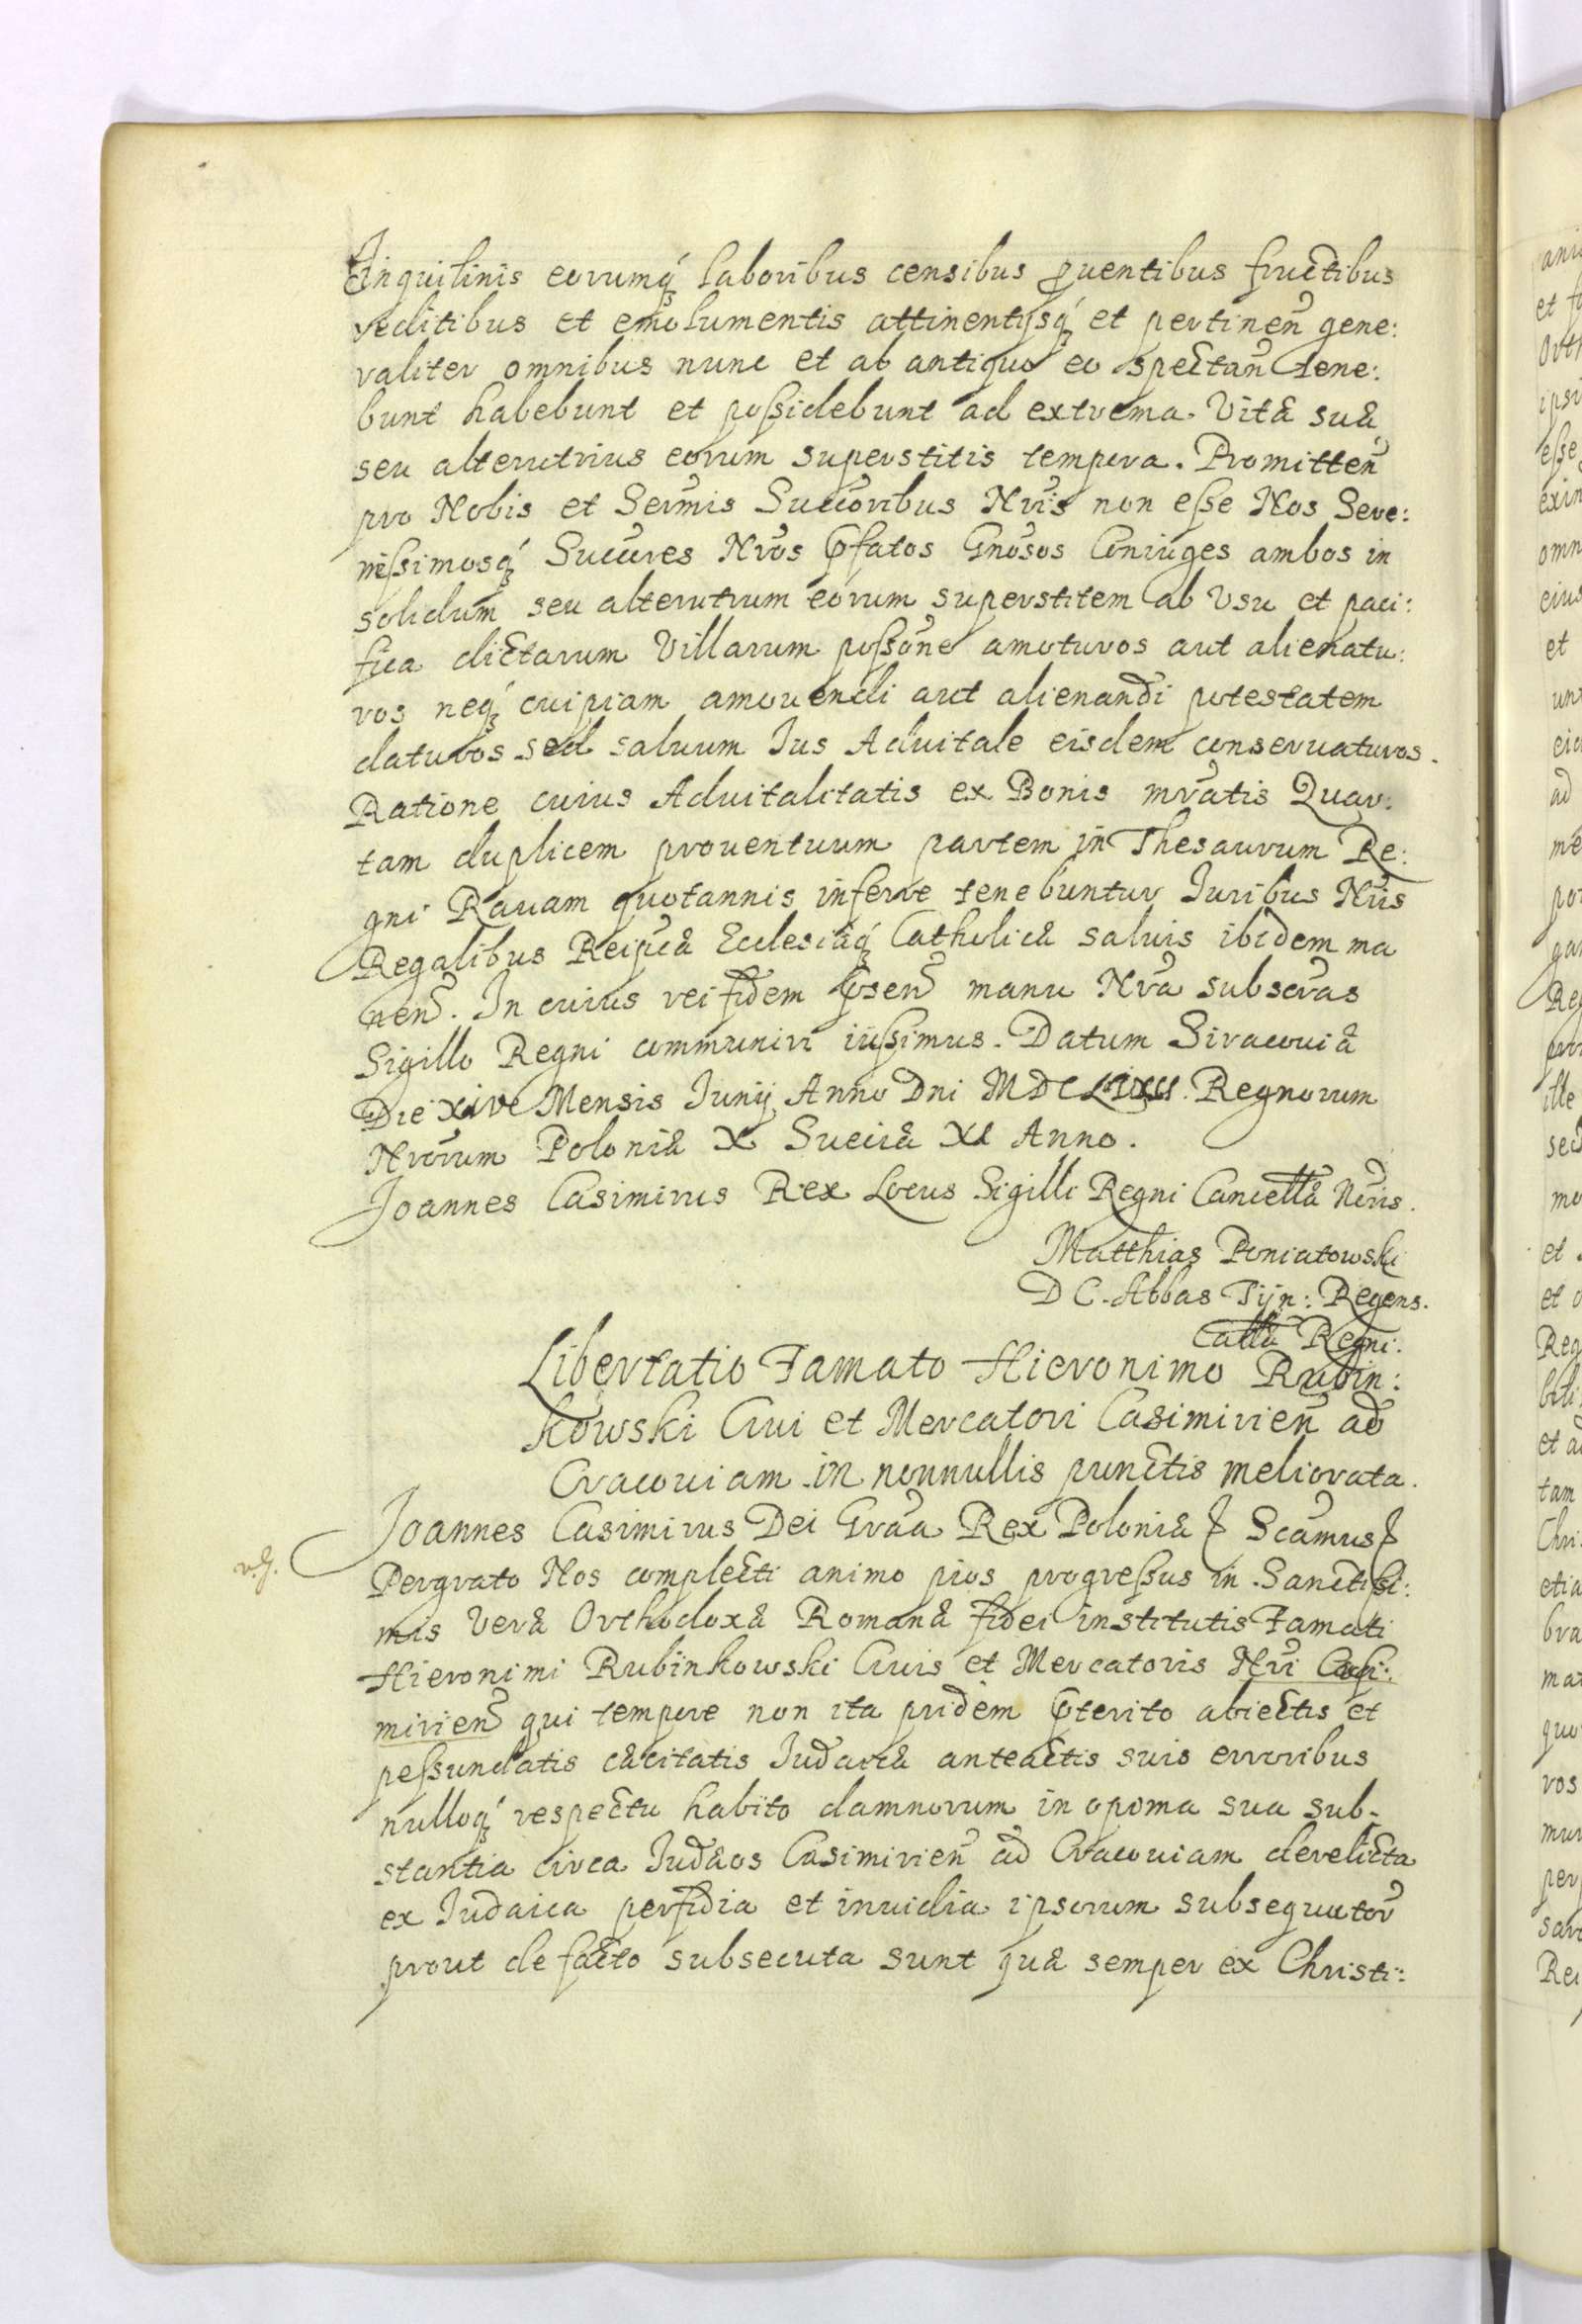 Inquilinis eorumq́ laboribus censibus ꝓuentibus fructibus
reditibus et emolumentis attinentijsq́ et pertineñ gene:
raliter omnibus nunc et ab antiquo eo spectañ tene:
bunt habebunt et poßidebunt ad extrema Vitæ suæ
seu alterutrius eorum superstitis tempora. Promitteñ
pro Nobis et Sermis Succoribus Nris non eße Nos Sere:
nißimosq́ Succores Nros p̃fatos Gnosos Coniuges ambos in
solidum seu alterutrum eorum superstitem ab Vsu et paci:
fica dictarum Villarum poßone amoturos aut alienatu:
ros neq́ cuipiam amouendi aut alienandi potestatem
daturos sed saluum Ius Aduitale eisdem conseruaturos.
Ratione cuius Aduitalitatis ex Bonis mratis Quar:
tam duplicem prouentuum partem in Thesaurum Re:
gni Rauam quotannis inferre tenebuntur Iuribus Nris
Regalibus Reipcæ Ecclesiæq́ Catholicæ saluis ibidem ma
neñ. In cuius rei fidem p̃señ manu Nra subscras
Sigillo Regni communiri iußimus. Datum Siracouiæ
Die Mensis Iunij Anno Dni Regnorum
Nrorum Poloniæ X Sueciæ XI Anno.
Joannes Casimirus Rex Locus Sigilli Regni Cancellæ Noris.
Matthias Poniatowski
D C. Abbas Tijn: Regens.
Callæ Regni.
Libertatio Famato Hieronimo Rubin:
kowski Ciui et Mercatori Casimirieñ ad
Cracouiam in nonnullis punctis meliorata.
Joannes Casimirus Dei Graa Rex Poloniæ ꝭ Scamus ꝭ
Pergrato Nos complecti animo pios progreßus in Sanctißi:
mis Veræ Orthodoxæ Romanæ fidei institutis Famati
Hieronimi Rubinkowski Ciuis et Mercatoris Nri Casi:
mirieñ qui tempore non ita pridem p̃terito abiectis et
peßundatis cæcitatis Iudaicæ anteactis suis erroribus
nulloq́ respectu habito damnorum in opoma sua sub-
stantia circa Iudæos Casimirieñ ad Cracouiam derelicta
ex Iudaica perfidia et inuidia ipsorum subsequutor
prout de facto subsecuta sunt quæ semper ex Christi: